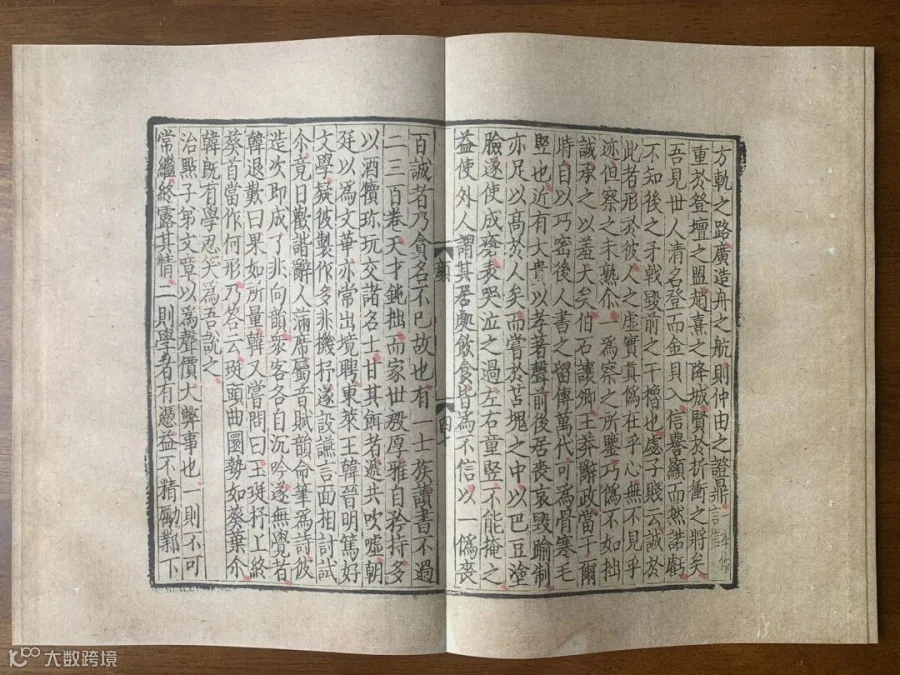 方軌之路廣造舟之航則仲由之證鼎
重於登壇之盟趙熹之降城賢於折衝之將矣
吾見世人清名登而金貝入信譽顯而然諾虧
不知後之矛戟毀前之干櫓也虙子賤云誠於
此者形於彼人之虛實真偽在乎心無不見乎
迹但察之未熟尒一爲察之所鑒巧偽不如拙
誠承之以羞大矣伯石讓卿王莽辭政當于爾
時自以巧密後人書之留傳萬代可爲骨寒毛
竪也近有大貴以孝著聲前後居喪哀毀踰制
亦足以高於人矣而嘗於苫塊之中以巴豆塗
臉遂使成瘡表哭泣之過左右童竪不能掩之
益使外人謂其居處飲食皆爲不信以一偽喪
顔
百誠者乃貪名不已故也有一士族讀書不過
二三百卷天才鈍拙而家世殷厚雅自矜持多
以酒犢珎玩交諸名士甘其餌者遞共吹噓朝
廷以爲文華亦常出境聘東萊王韓晉明篤好
文學疑彼製作多非機杼遂設讌言面相討試
尒竟日歡諧辭人滿席屬音賦韻命筆爲詩彼
造次即成了非向韻衆客各自沉吟遂無覺者
韓退歎曰果如所量韓又嘗問曰玉珽杼上終
葵首當作何形乃答云珽頭曲圜勢如葵葉尒
韓既有學忍笑爲吾說之
治點子弟文章以爲聲價大弊事也一則不可
常繼終露其情二則學者有憑益不精勵鄴下
大数跨境